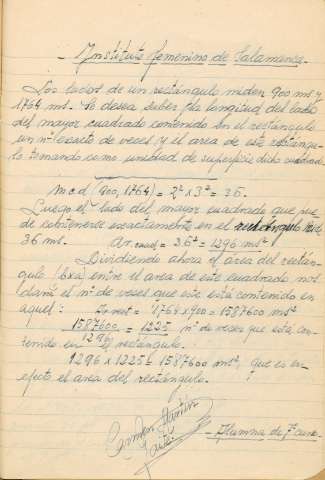 - Instituto femenino de Salamanca.
Los lados de un rectángulo miden 900 ms y
1764 ms. Se desea saber la longitud del lado
del mayor cuadrado contenido en el rectángulo
un nº exacto de veces y el area de ese rectángu-
lo tomando como unidad de superficie dicho cuadrado
m c d (900, 1764) = 2² x 3² = 36.
Luego el lado del mayor cuadrado que pue
de contenerse exactamente en el rectángulo
36 ms. Ar. cuad = 36² = 1296 ms²
Dividiendo ahora el area del rectán-
gulo (bxa) entre el area de este cuadrado nos
dará el nº de veces que este está contenido en
aquel: 1764 x 900 = 1587600 ms²
1587600 / 1296 = 1225 nº de veces que está con-
tenido en el rectángulo.
1296 x 1225 = 1587600 ms², que es en
efecto el area del rectángulo.
Carmen Martín
- Alumna de 7º curso -